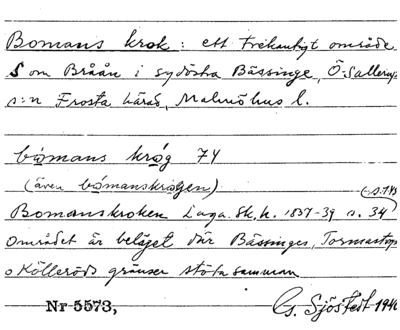 Bomans krok : ett trekantigt område
S om Bråån i sydöstra Bässinge, Ö. Sallerups
s:n Frosta härad, Malmöhus l.
bomans krog 74
(även bomanskrogen)
(-s.143
Bomanskroken Laga. Sk. h. 1837-39 s. 34
Området är beläget där Bässinges, Tormastorps
o Kölleröds gränser stöta samman
Nr 5573, Gs. Sjöstedt 1940